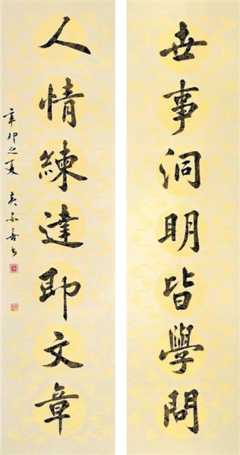 世事洞明皆學問
人情練達即文章
辛卯之夏